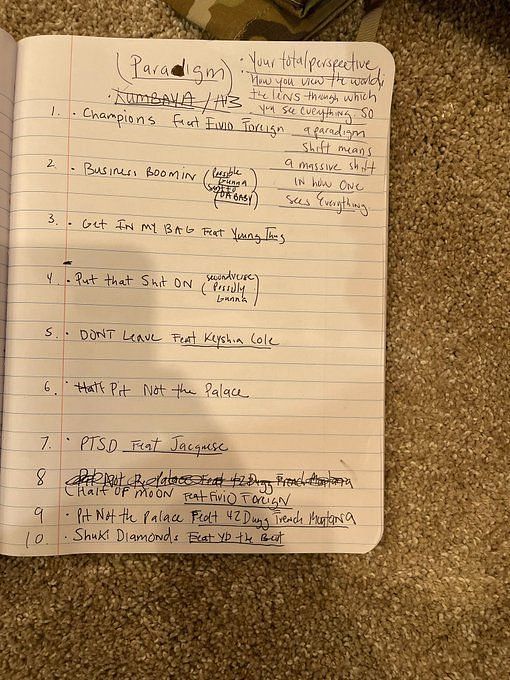 (Paradigm)
· Your total perspective
How you view the world;
the lens through which
you see everything. So
a paradigm
shift means
a massive shift
in how one
sees Everything.
· KUMBAYA / #3
1. · Champions Feat FIVIO Foreign
2. · Business Boomin (Possible
Gunna
DABABY)
3. · Get IN My BAG Feat Young Thug
4. · Put that Shit ON (secondverse
Possibly
Gunna)
5. · DONT Leave Feat Keyshia Cole
6. · Half Pit Not the Palace
7. · PTSD Feat Jacquese
8 Not Palace Feat 42 Dugg French Montana
(Half OF MOON Feat FiviO Foreign
9 · Pit Not the Palace Feat 42 Dugg French Montana
10 · Shuki Diamonds Feat YD the Best